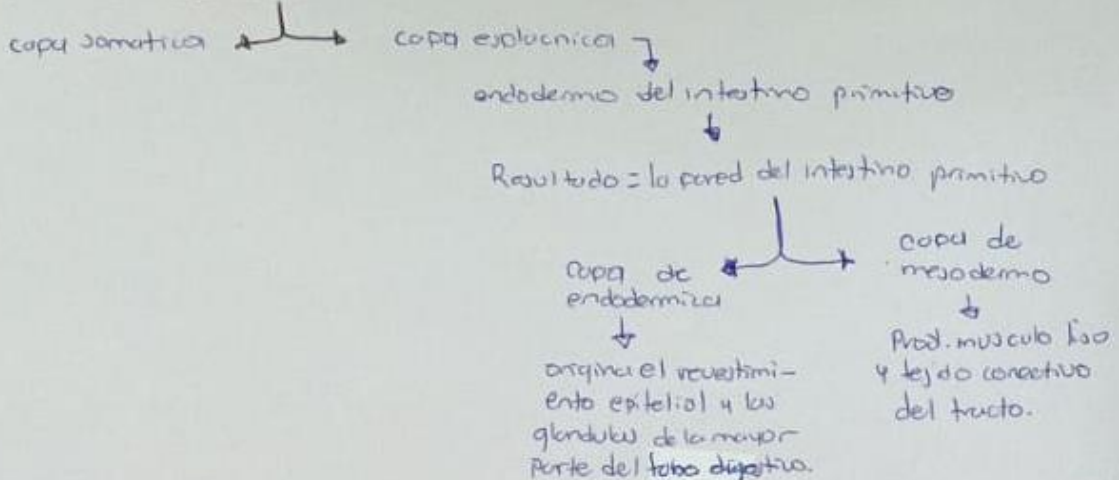 capa somatica
capa esplacnica
endodermo del intestino primitivo
Resultado = la pared del intestino primitivo
capa de
endodermica
origina el revestimi-
ento epitelial y las
glandulas de la mayor
parte del tubo digestivo.
capa de
mesodermo
Prod. musculo liso
y tejido conectivo
del tracto.